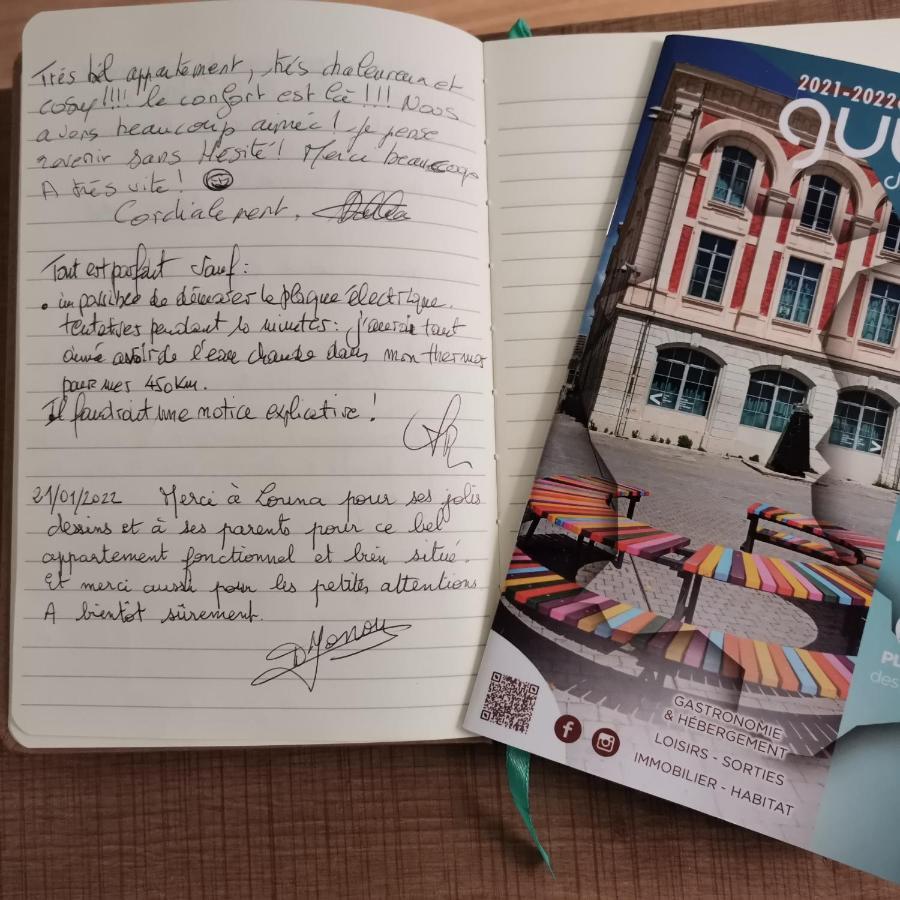 Très bel appartement, très chaleureux et
cosy!!!! le confort est là!!! Nous
avons beaucoup aimé! Je pense
revenir sans Hésité! Merci beaucoup
A très vite!
Cordialement,
Tout est parfait sauf:
• impossible de démarrer la plaque électrique.
tentatives pendant 10 minutes: j'aurais tant
aimé avoir de l'eau chaude dans mon thermos
pour mes 450km.
Il faudrait une notice explicative!
21/01/2022 Merci à Louna pour ses jolis
dessins et à ses parents pour ce bel
appartement fonctionnel et bien situé.
Et merci aussi pour les petites attentions
A bientôt sûrement.
2021-2022
GASTRONOMIE
& HÉBERGEMENT
LOISIRS - SORTIES
IMMOBILIER - HABITAT
des